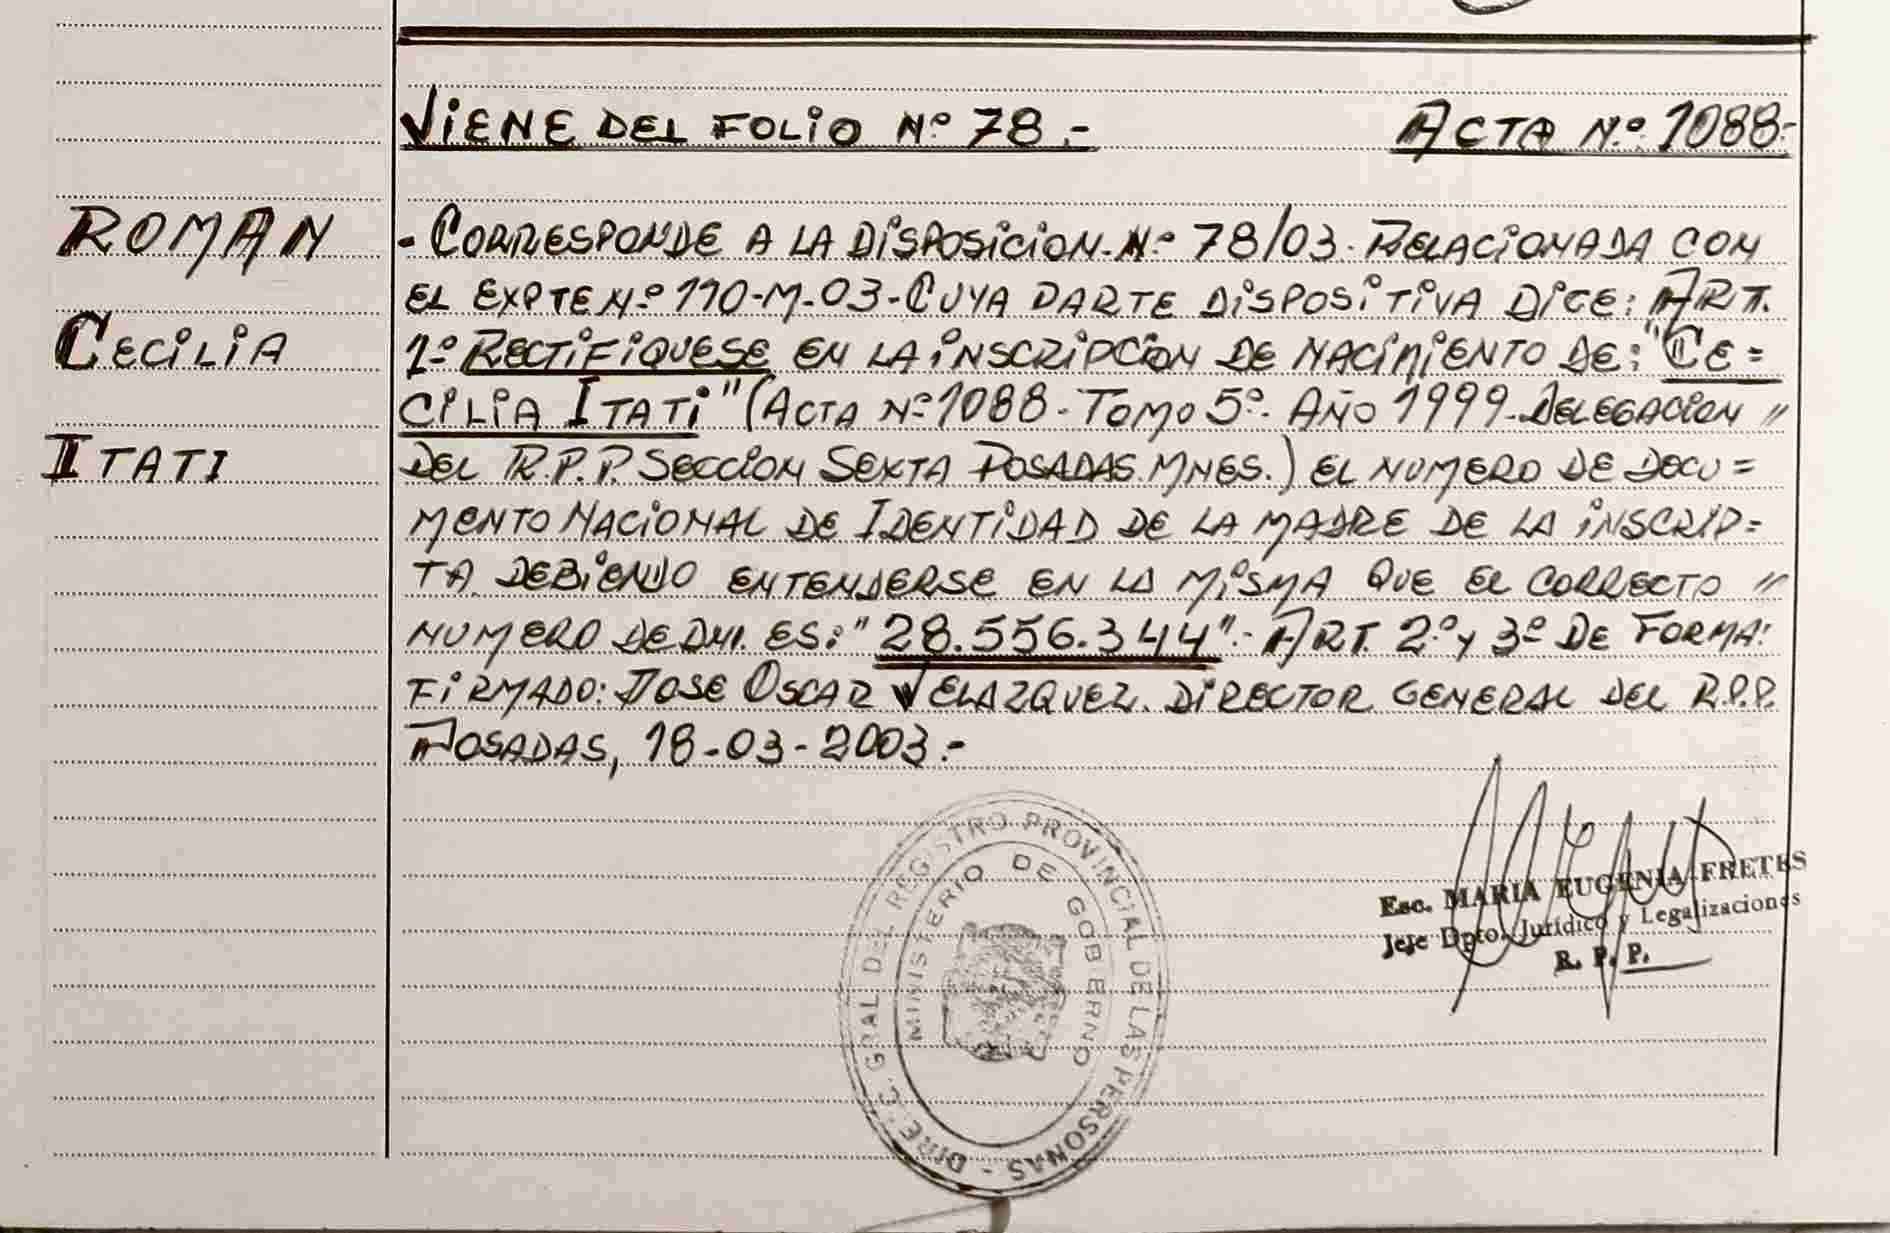 VIENE DEL FOLIO Nº 78.-
ACTA Nº 1088-
ROMAN
CECILIA
ITATI
- CORRESPONDE A LA DISPOSICION. Nº 78/03. RELACIONADA CON
EL EXPTE Nº 110-M-03-CUYA PARTE DISPOSITIVA DICE: ART.
1º RECTIFIQUESE EN LA INSCRIPCION DE NACIMIENTO DE: "CE=
CILIA ITATI" (ACTA Nº 1088. TOMO 5º. AÑO 1999-DELEGACION "
DEL R.P.P. SECCION SEXTA POSADAS.MNES.) EL NUMERO DE DOCU=
MENTO NACIONAL DE IDENTIDAD DE LA MADRE DE LA INSCRIP=
TA. DEBIENDO ENTENDERSE EN LA MISMA QUE EL CORRECTO "
NUMERO DE DNI. ES: "28.556.344".- ART. 2º Y 3º DE FORMA:
FIRMADO: JOSE OSCAR VELAZQUEZ. DIRECTOR GENERAL DEL R.P.P.
POSADAS, 18-03-2003.-
DIREC. GRAL DEL REGISTRO PROVINCIAL DE LAS PERSONAS -
MINISTERIO DE GOBIERNO
Esc. MARIA EUGENIA FRETES
Jefe Dpto. Jurídico y Legalizaciones
R. P. P.